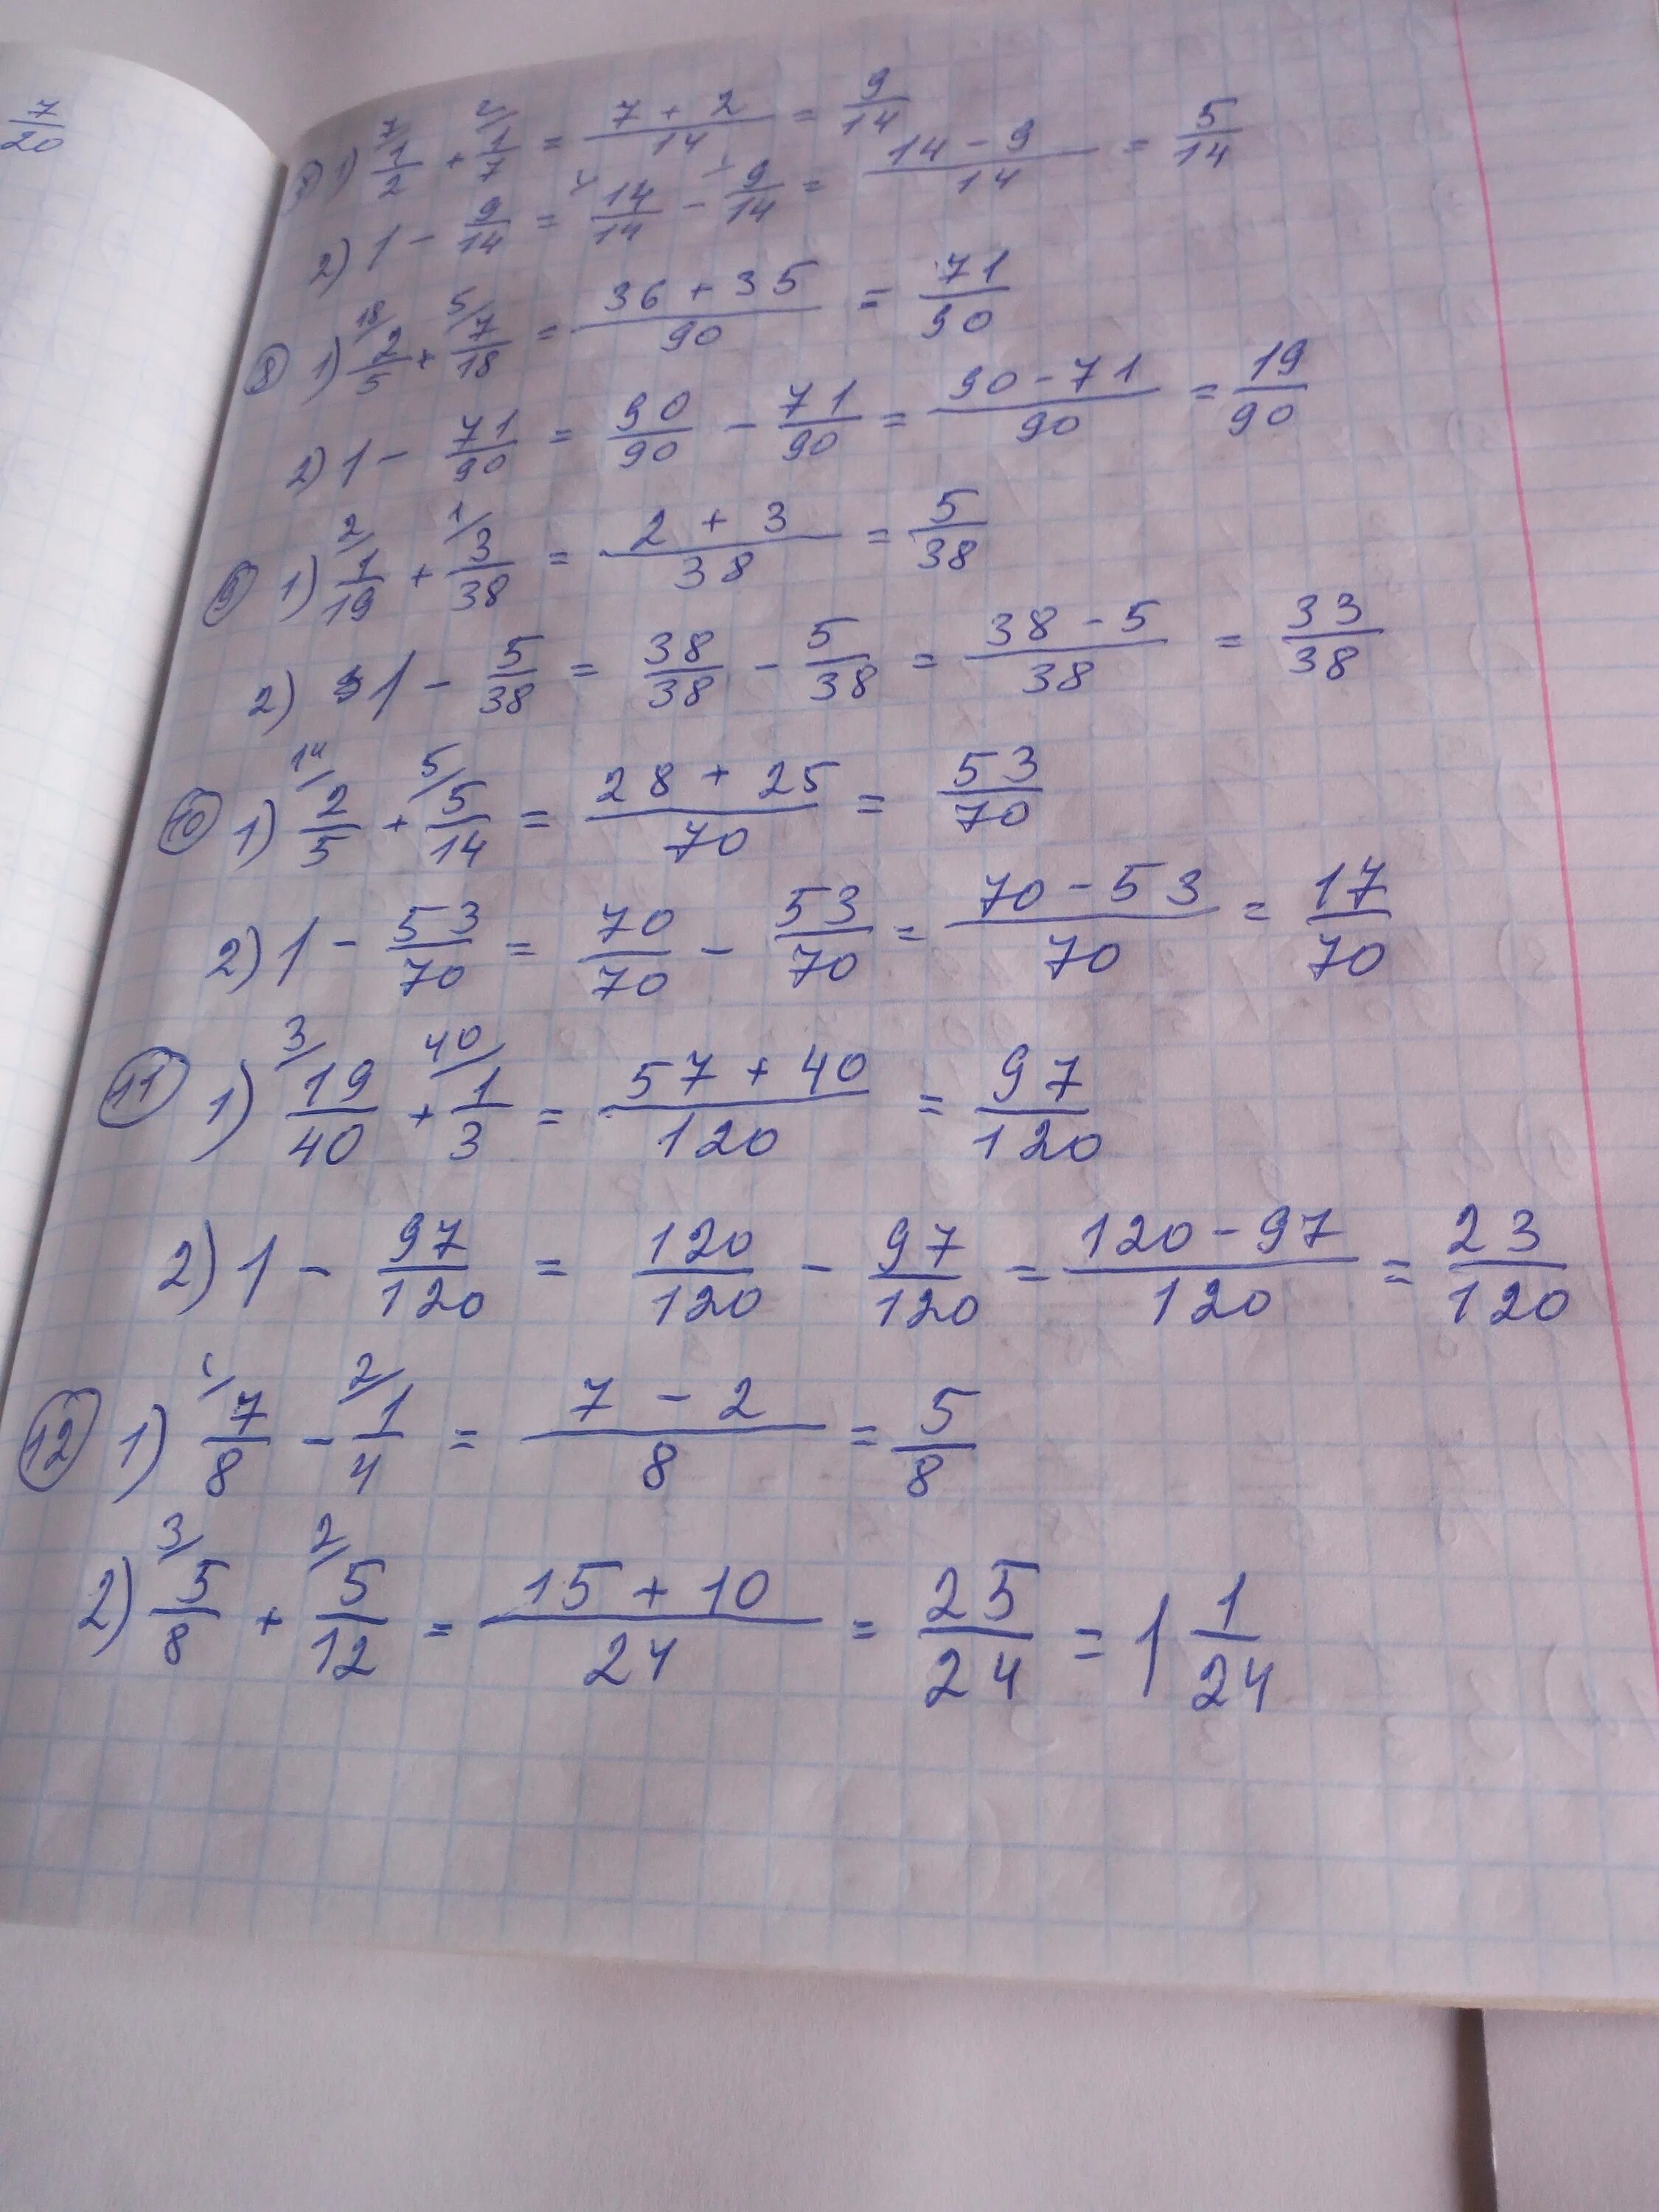 7/20
7) 1) 7/ 1/2 + 2/ 1/7 = (7 + 2)/14 = 9/14
2) 1 - 9/14 = 14/14 - 9/14 = (14 - 9)/14 = 5/14
8) 1) 18/ 2/5 + 5/ 7/18 = (36 + 35)/90 = 71/90
2) 1 - 71/90 = 90/90 - 71/90 = (90 - 71)/90 = 19/90
9) 1) 2/ 1/19 + 1/ 3/38 = (2 + 3)/38 = 5/38
2) 1 - 5/38 = 38/38 - 5/38 = (38 - 5)/38 = 33/38
10) 1) 14/ 2/5 + 5/ 5/14 = (28 + 25)/70 = 53/70
2) 1 - 53/70 = 70/70 - 53/70 = (70 - 53)/70 = 17/70
11) 1) 3/ 19/40 + 40/ 1/3 = (57 + 40)/120 = 97/120
2) 1 - 97/120 = 120/120 - 97/120 = (120 - 97)/120 = 23/120
12) 1) 1/ 7/8 - 2/ 1/4 = (7 - 2)/8 = 5/8
2) 3/ 5/8 + 2/ 5/12 = (15 + 10)/24 = 25/24 = 1 1/24